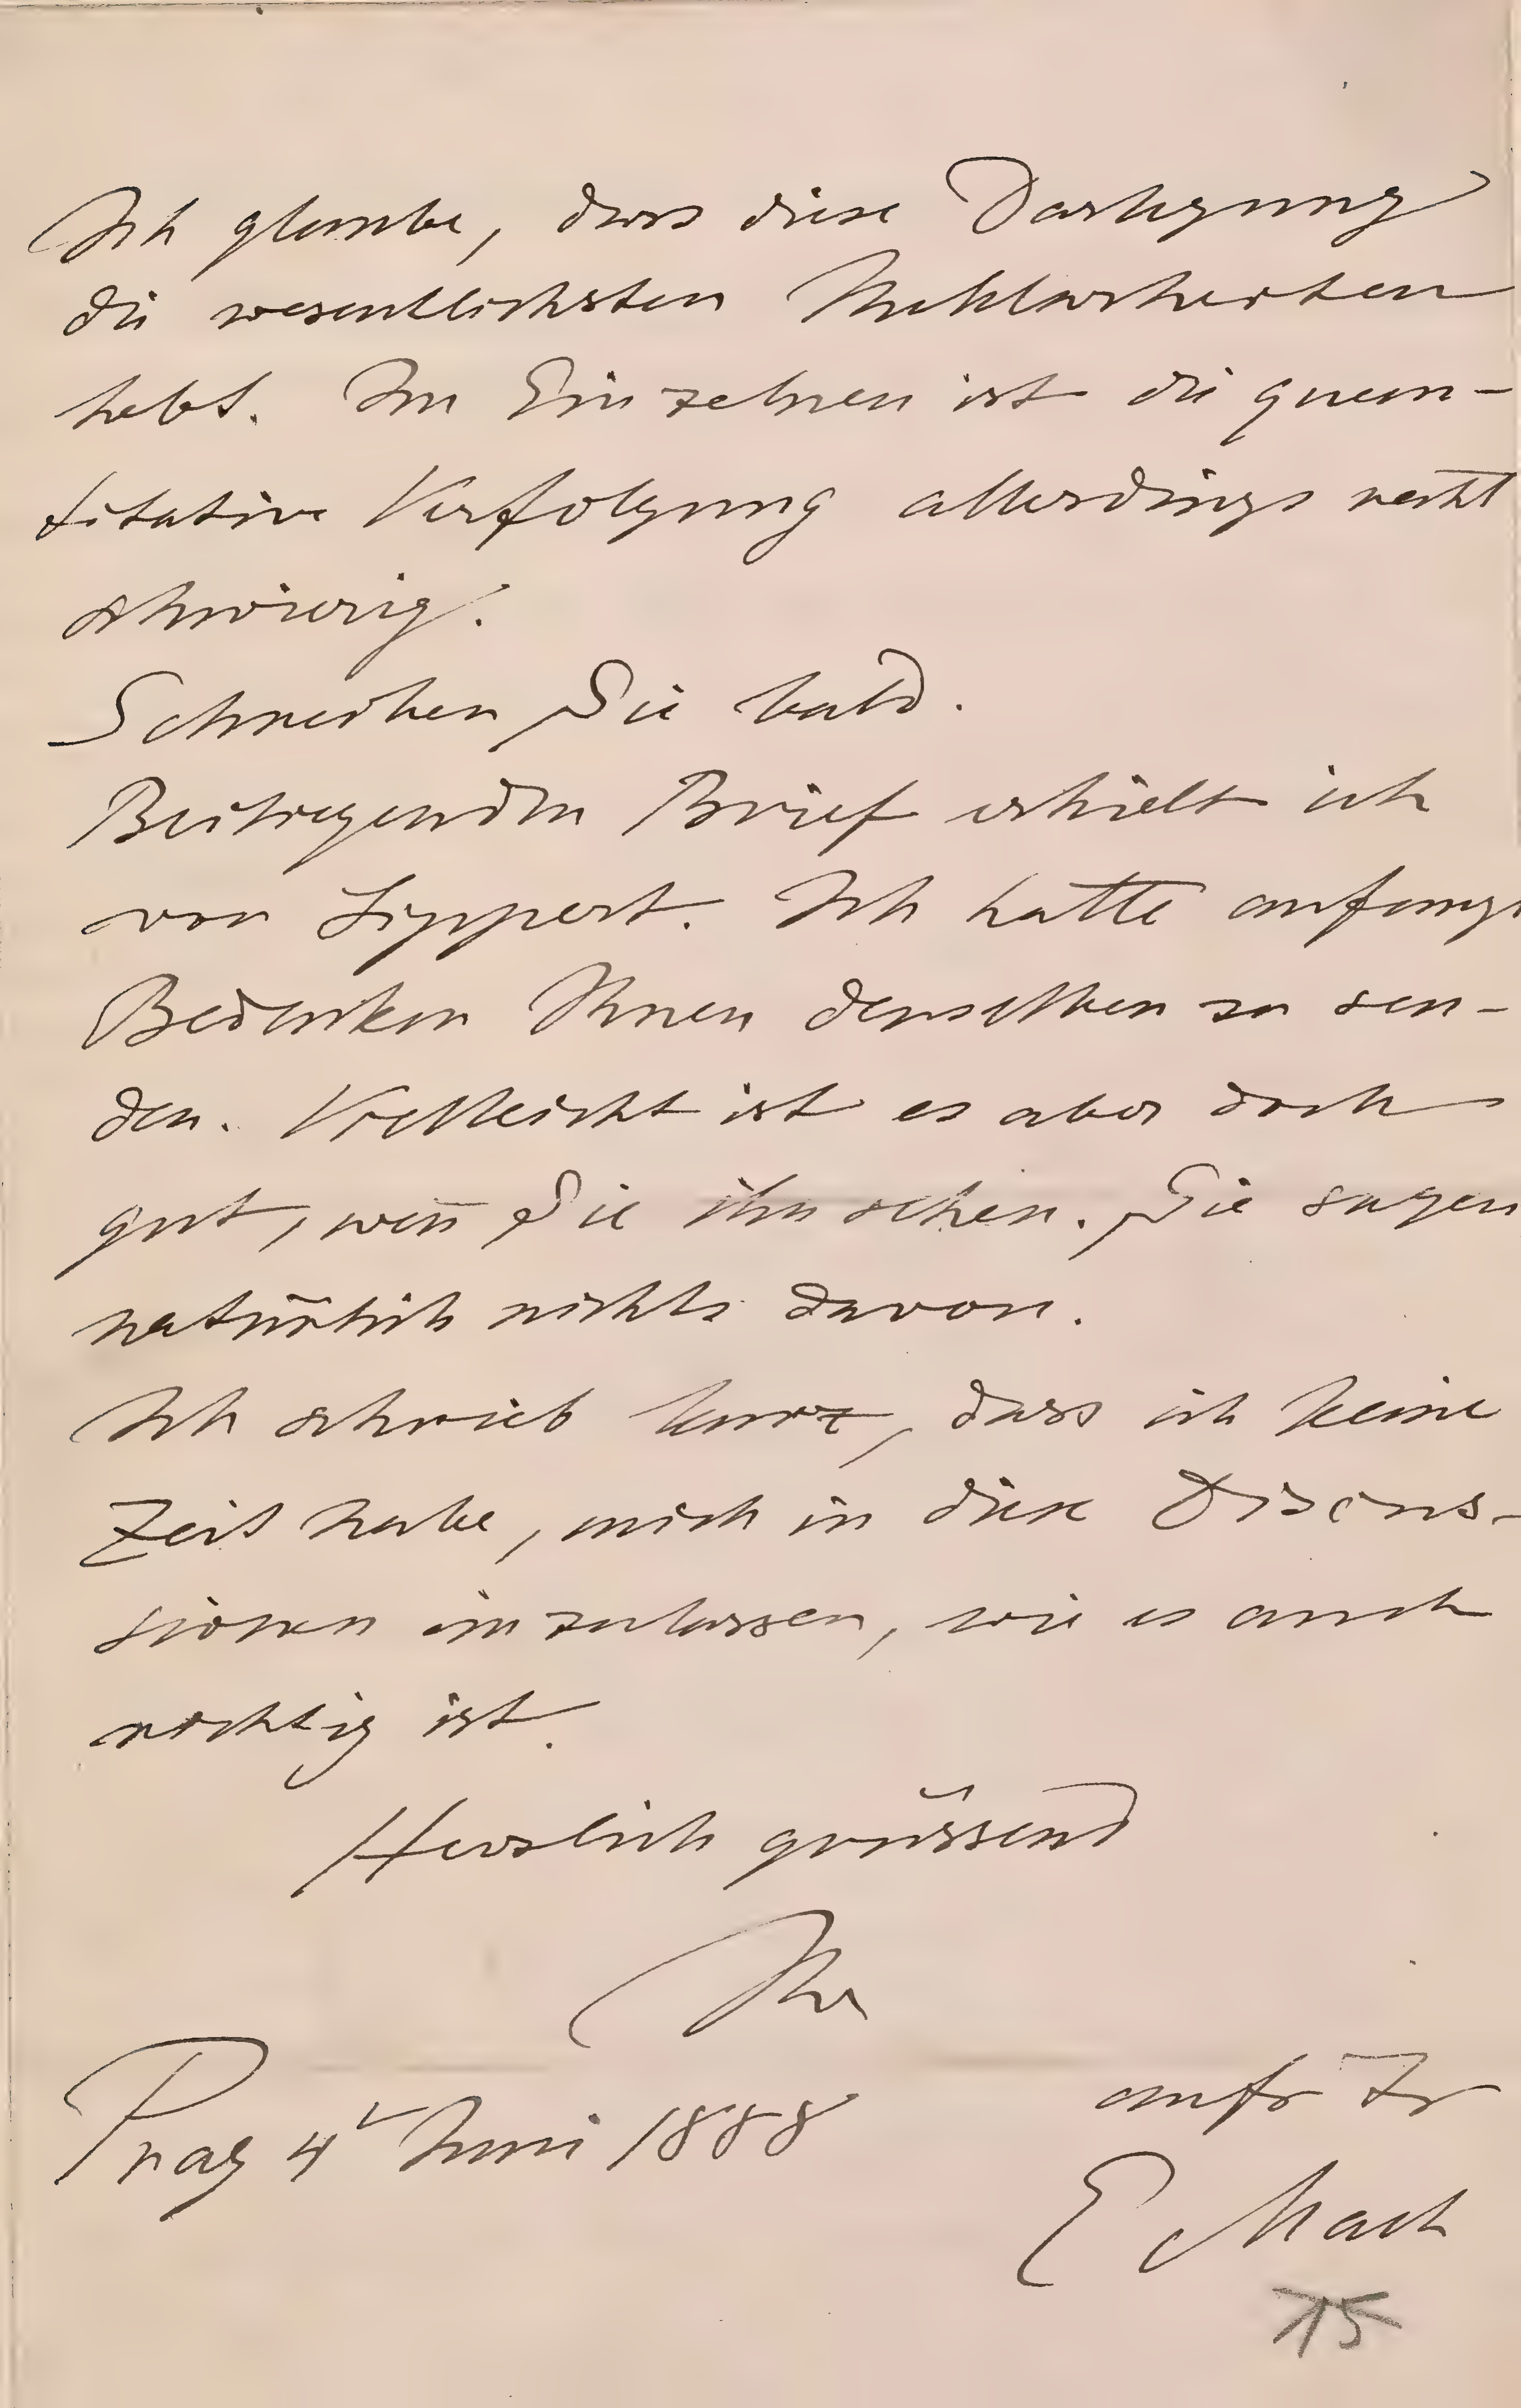 Ich glaube, dass diese Darlegung
die wesentlichsten Unklarheiten
hebt. Im Einzelnen ist die quan-
titative Verfolgung allerdings recht
schwierig.
Schreiben Sie bald.
Beiliegenden Brief erhielt ich
von Lippert. Ich hatte anfangs
Bedenken Ihnen denselben zu sen-
den. Vielleicht ist es aber doch
gut, weñ Sie ihn sehen. Sie sagen
natürlich nichts davon.
Ich schrieb kurz, dass ich keine
Zeit habe, mich in diese Discus-
sionen einzulassen, wie es auch
richtig ist.
Herzlich grüssend
Ihr
aufr Fr
Prag 4 Juni 1888
E Mach
15